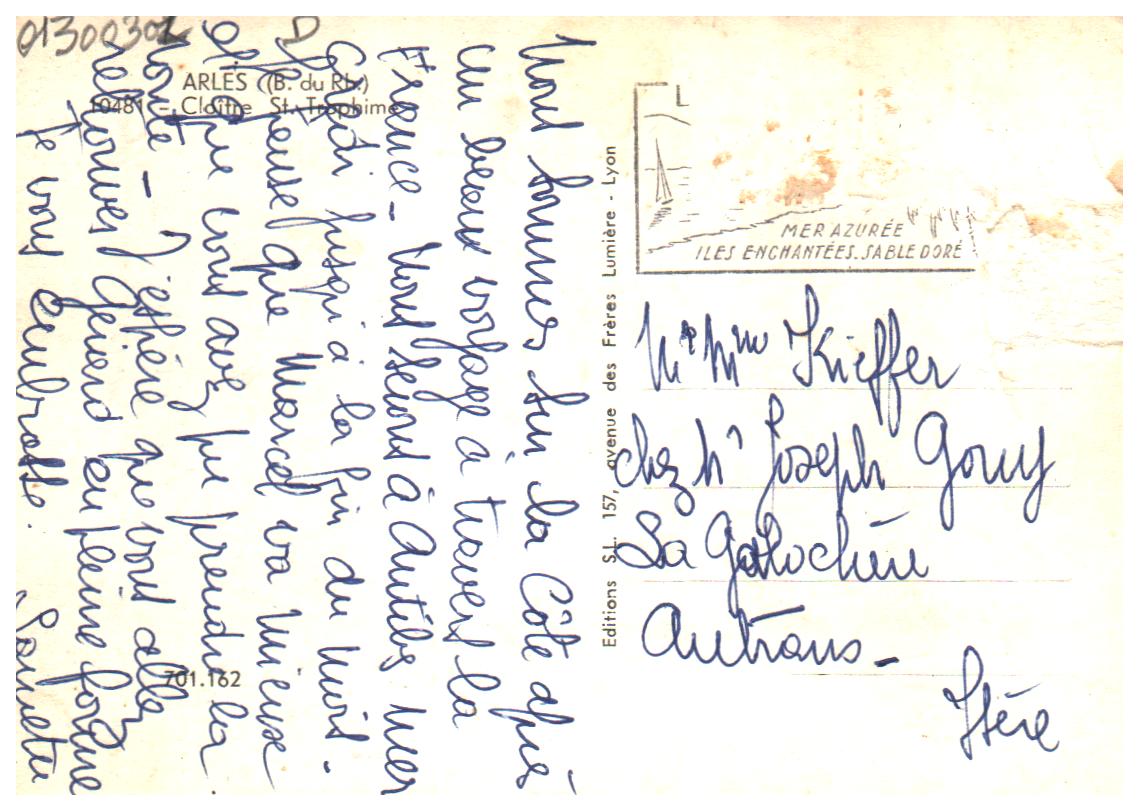 01300302 D
ARLES (B. du Rh.)
10481 - Cloître St. Trophime
Nous sommes sur la Côte après
un beau voyage à travers la
France - Nous serons à Antibes mer
credi jusqu'à la fin du mois.
Je pense que Marcel va mieux
et que vous avez pu prendre la
route - J'espère que vous allez
retrouver Gérard en pleine forme
Je vous embrasse.
701.162
Editions S.L. 157, avenue des Frères Lumière - Lyon
MER AZURÉE
ILES ENCHANTÉES. SABLE DORÉ
Mr Mme Kieffer
chez Mr Joseph Gouy
La
Autrans -
Isère